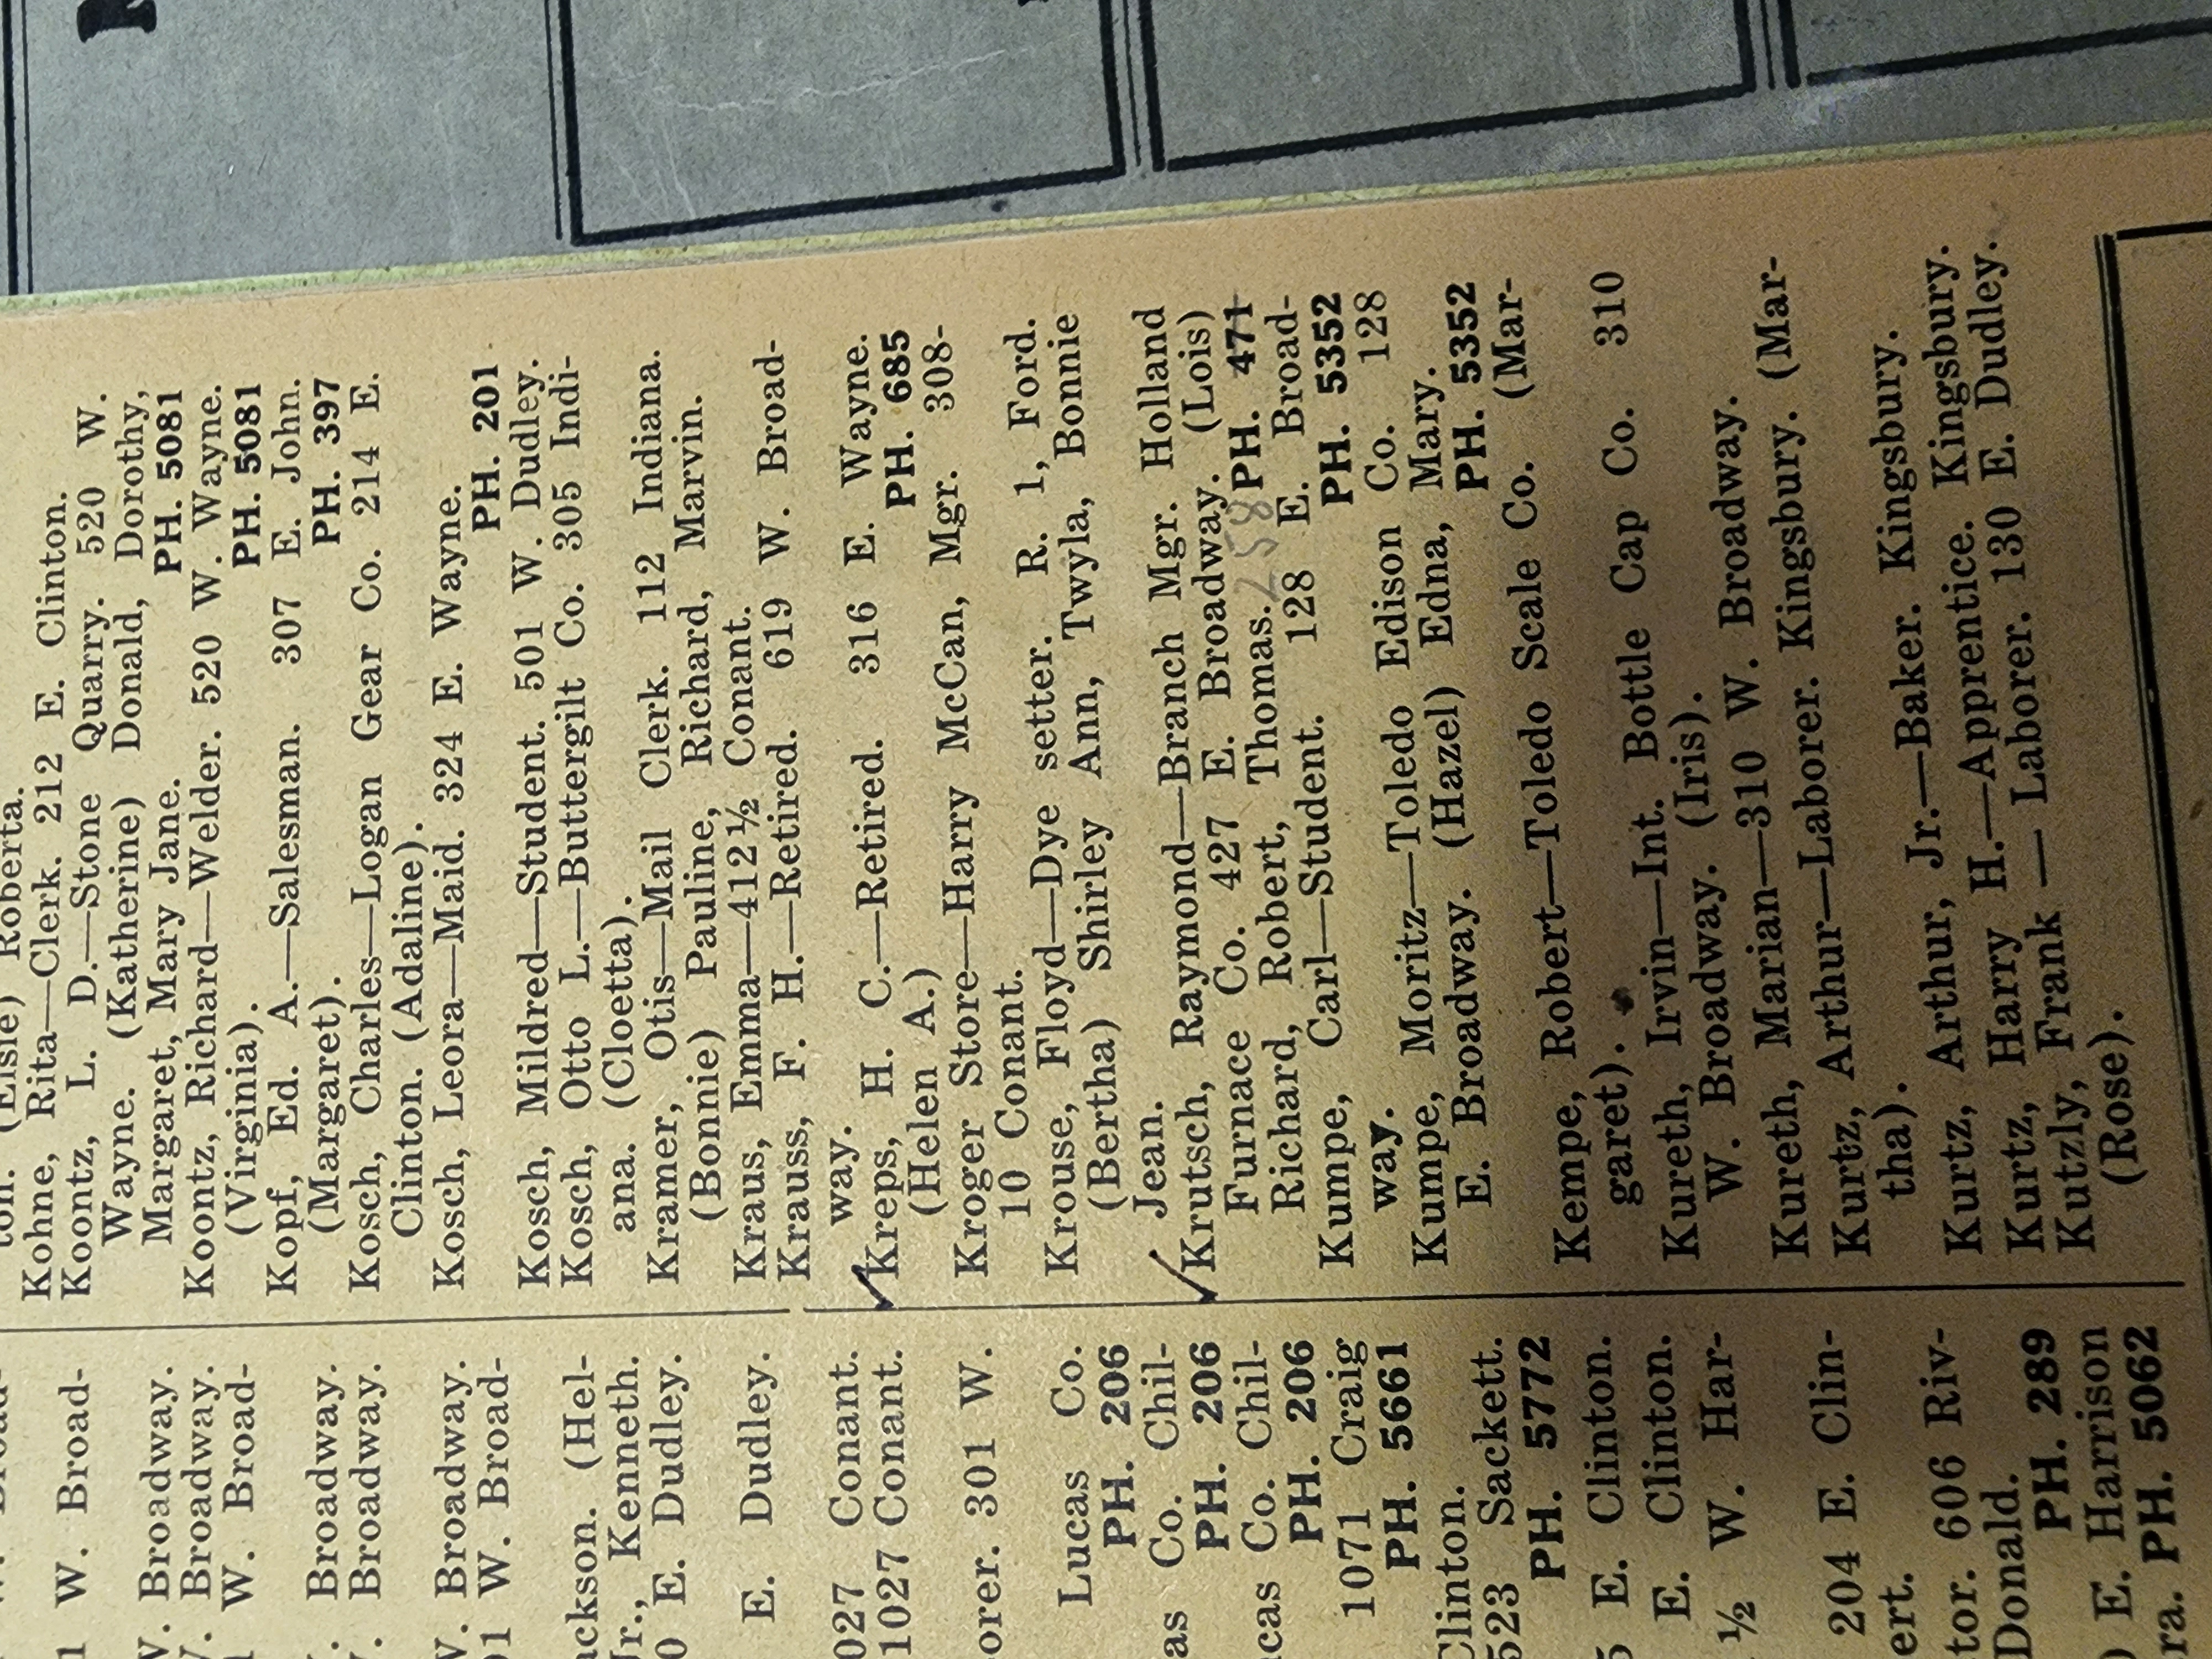 ton. (Elsie) Roberta.
Kohne, Rita—Clerk. 212 E. Clinton.
Koontz, L. D.—Stone Quarry. 520 W.
Wayne. (Katherine) Donald, Dorothy,
Margaret, Mary Jane. PH. 5081
Koontz, Richard—Welder. 520 W. Wayne.
(Virginia). PH. 5081
Kopf, Ed. A.—Salesman. 307 E. John.
(Margaret). PH. 397
Kosch, Charles—Logan Gear Co. 214 E.
Clinton. (Adaline).
Kosch, Leora—Maid. 324 E. Wayne.
PH. 201
Kosch, Mildred—Student. 501 W. Dudley.
Kosch, Otto L.—Buttergilt Co. 305 Indi-
ana. (Cloetta).
Kramer, Otis—Mail Clerk. 112 Indiana.
(Bonnie) Pauline, Richard, Marvin.
Kraus, Emma—412½ Conant.
Krauss, F. H.—Retired. 619 W. Broad-
way.
Kreps, H. C.—Retired. 316 E. Wayne.
(Helen A.) PH. 685
Kroger Store—Harry McCan, Mgr. 308-
10 Conant.
Krouse, Floyd—Dye setter. R. 1, Ford.
(Bertha) Shirley Ann, Twyla, Bonnie
Jean.
Krutsch, Raymond—Branch Mgr. Holland
Furnace Co. 427 E. Broadway. (Lois)
Richard, Robert, Thomas. 258 PH. 471
Kumpe, Carl—Student. 128 E. Broad-
way. PH. 5352
Kumpe, Moritz—Toledo Edison Co. 128
E. Broadway. (Hazel) Edna, Mary.
PH. 5352
Kempe, Robert—Toledo Scale Co. (Mar-
garet).
Kureth, Irvin—Int. Bottle Cap Co. 310
W. Broadway. (Iris).
Kureth, Marian—310 W. Broadway.
Kurtz, Arthur—Laborer. Kingsbury. (Mar-
tha).
Kurtz, Arthur, Jr.—Baker. Kingsbury.
Kurtz, Harry H.—Apprentice. Kingsbury.
Kutzly, Frank — Laborer. 130 E. Dudley.
(Rose).
W. Broad-
W. Broadway.
W. Broadway.
W. Broad-
Broadway.
Broadway.
W. Broadway.
W. Broad-
(Hel-
Jr., Kenneth.
E. Dudley.
E. Dudley.
Conant.
1027 Conant.
301 W.
Lucas Co.
PH. 206
Co. Chil-
PH. 206
Co. Chil-
PH. 206
1071 Craig
PH. 5661
Clinton.
523 Sackett.
PH. 5772
E. Clinton.
E. Clinton.
½ W. Har-
204 E. Clin-
606 Riv-
Donald.
PH. 289
E. Harrison
PH. 5062